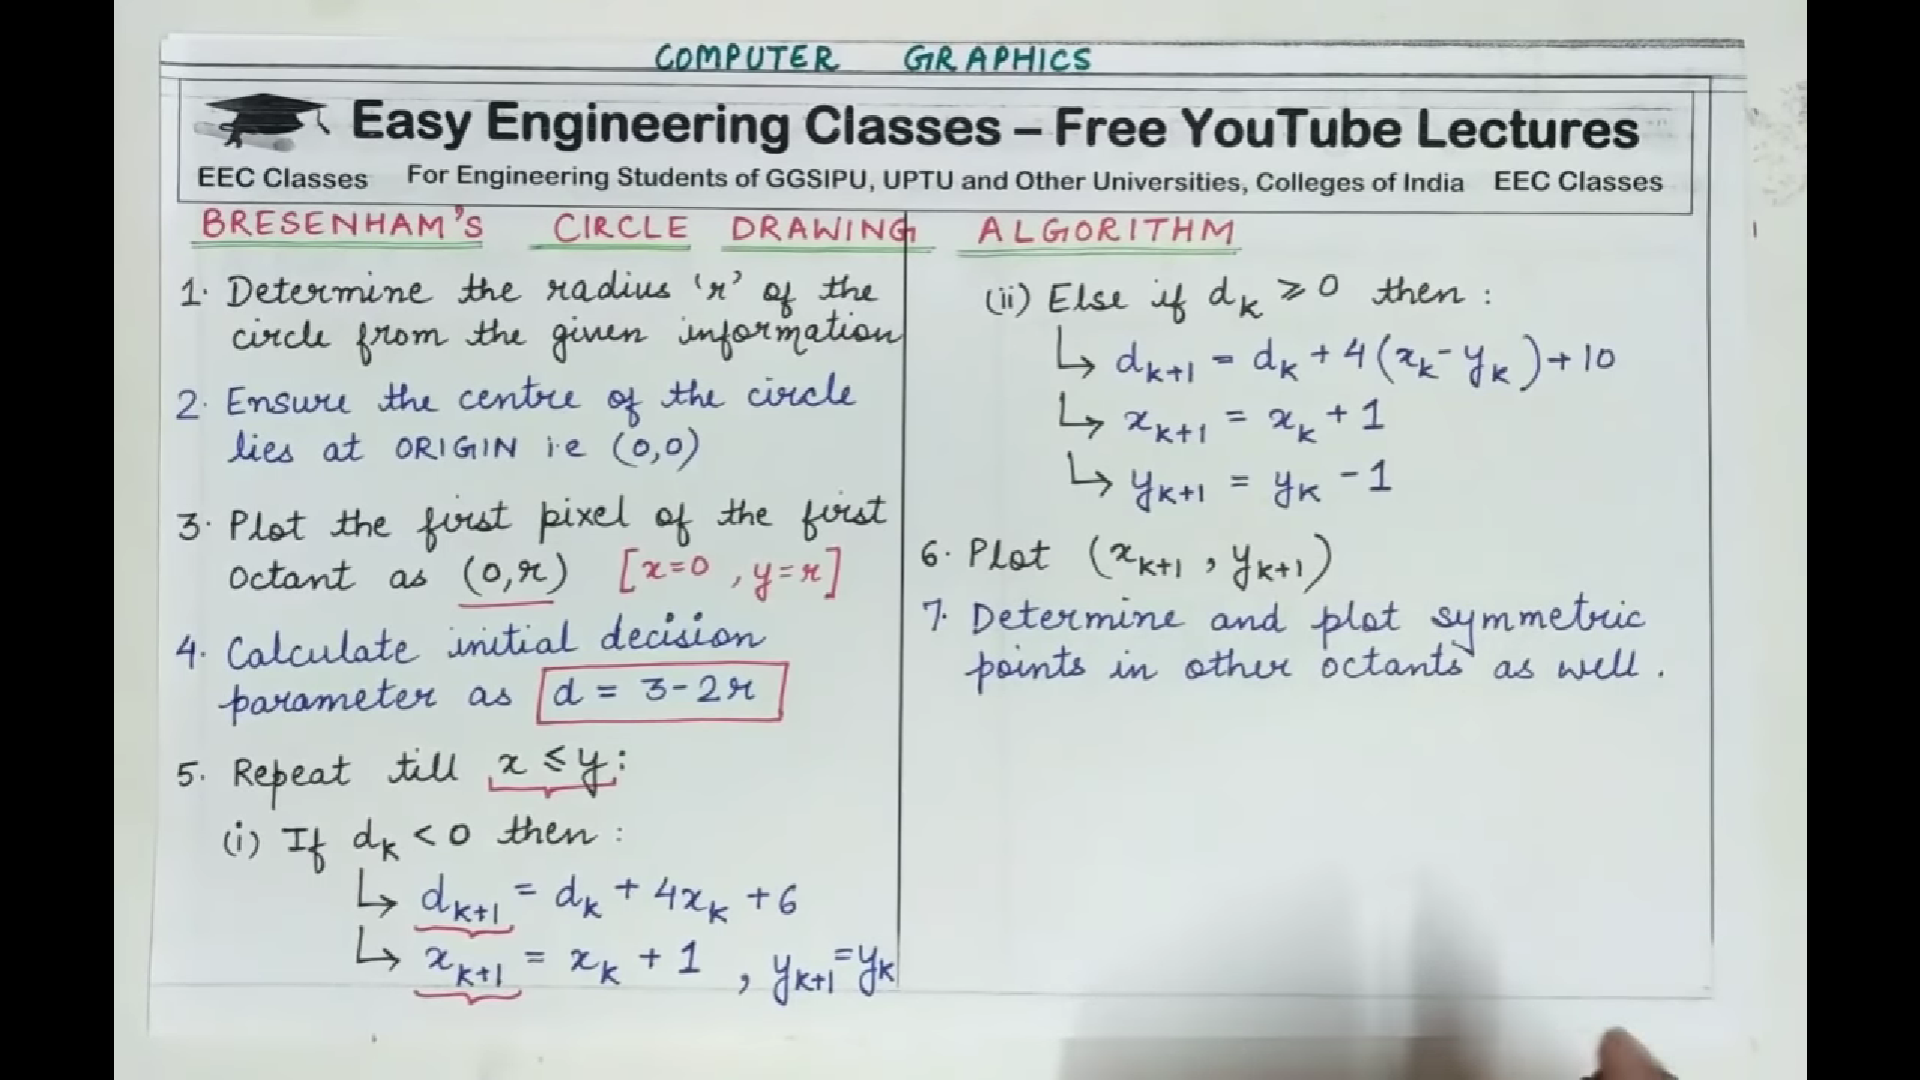 COMPUTER GRAPHICS
Easy Engineering Classes – Free YouTube Lectures
EEC Classes For Engineering Students of GGSIPU, UPTU and Other Universities, Colleges of India EEC Classes
BRESENHAM'S CIRCLE DRAWING ALGORITHM
1. Determine the radius 'r' of the
circle from the given information
2. Ensure the centre of the circle
lies at ORIGIN i.e (0,0)
3. Plot the first pixel of the first
octant as (0,r) [x=0, y=r]
4. Calculate initial decision
parameter as d = 3-2r
5. Repeat till x ≤ y:
(i) If dk < 0 then :
↳ dk+1 = dk + 4xk + 6
↳ xk+1 = xk + 1 , yk+1 = yk
(ii) Else if dk ≥ 0 then :
↳ dk+1 = dk + 4(xk - yk) + 10
↳ xk+1 = xk + 1
↳ yk+1 = yk - 1
6. Plot (xk+1, yk+1)
7. Determine and plot symmetric
points in other octants as well.